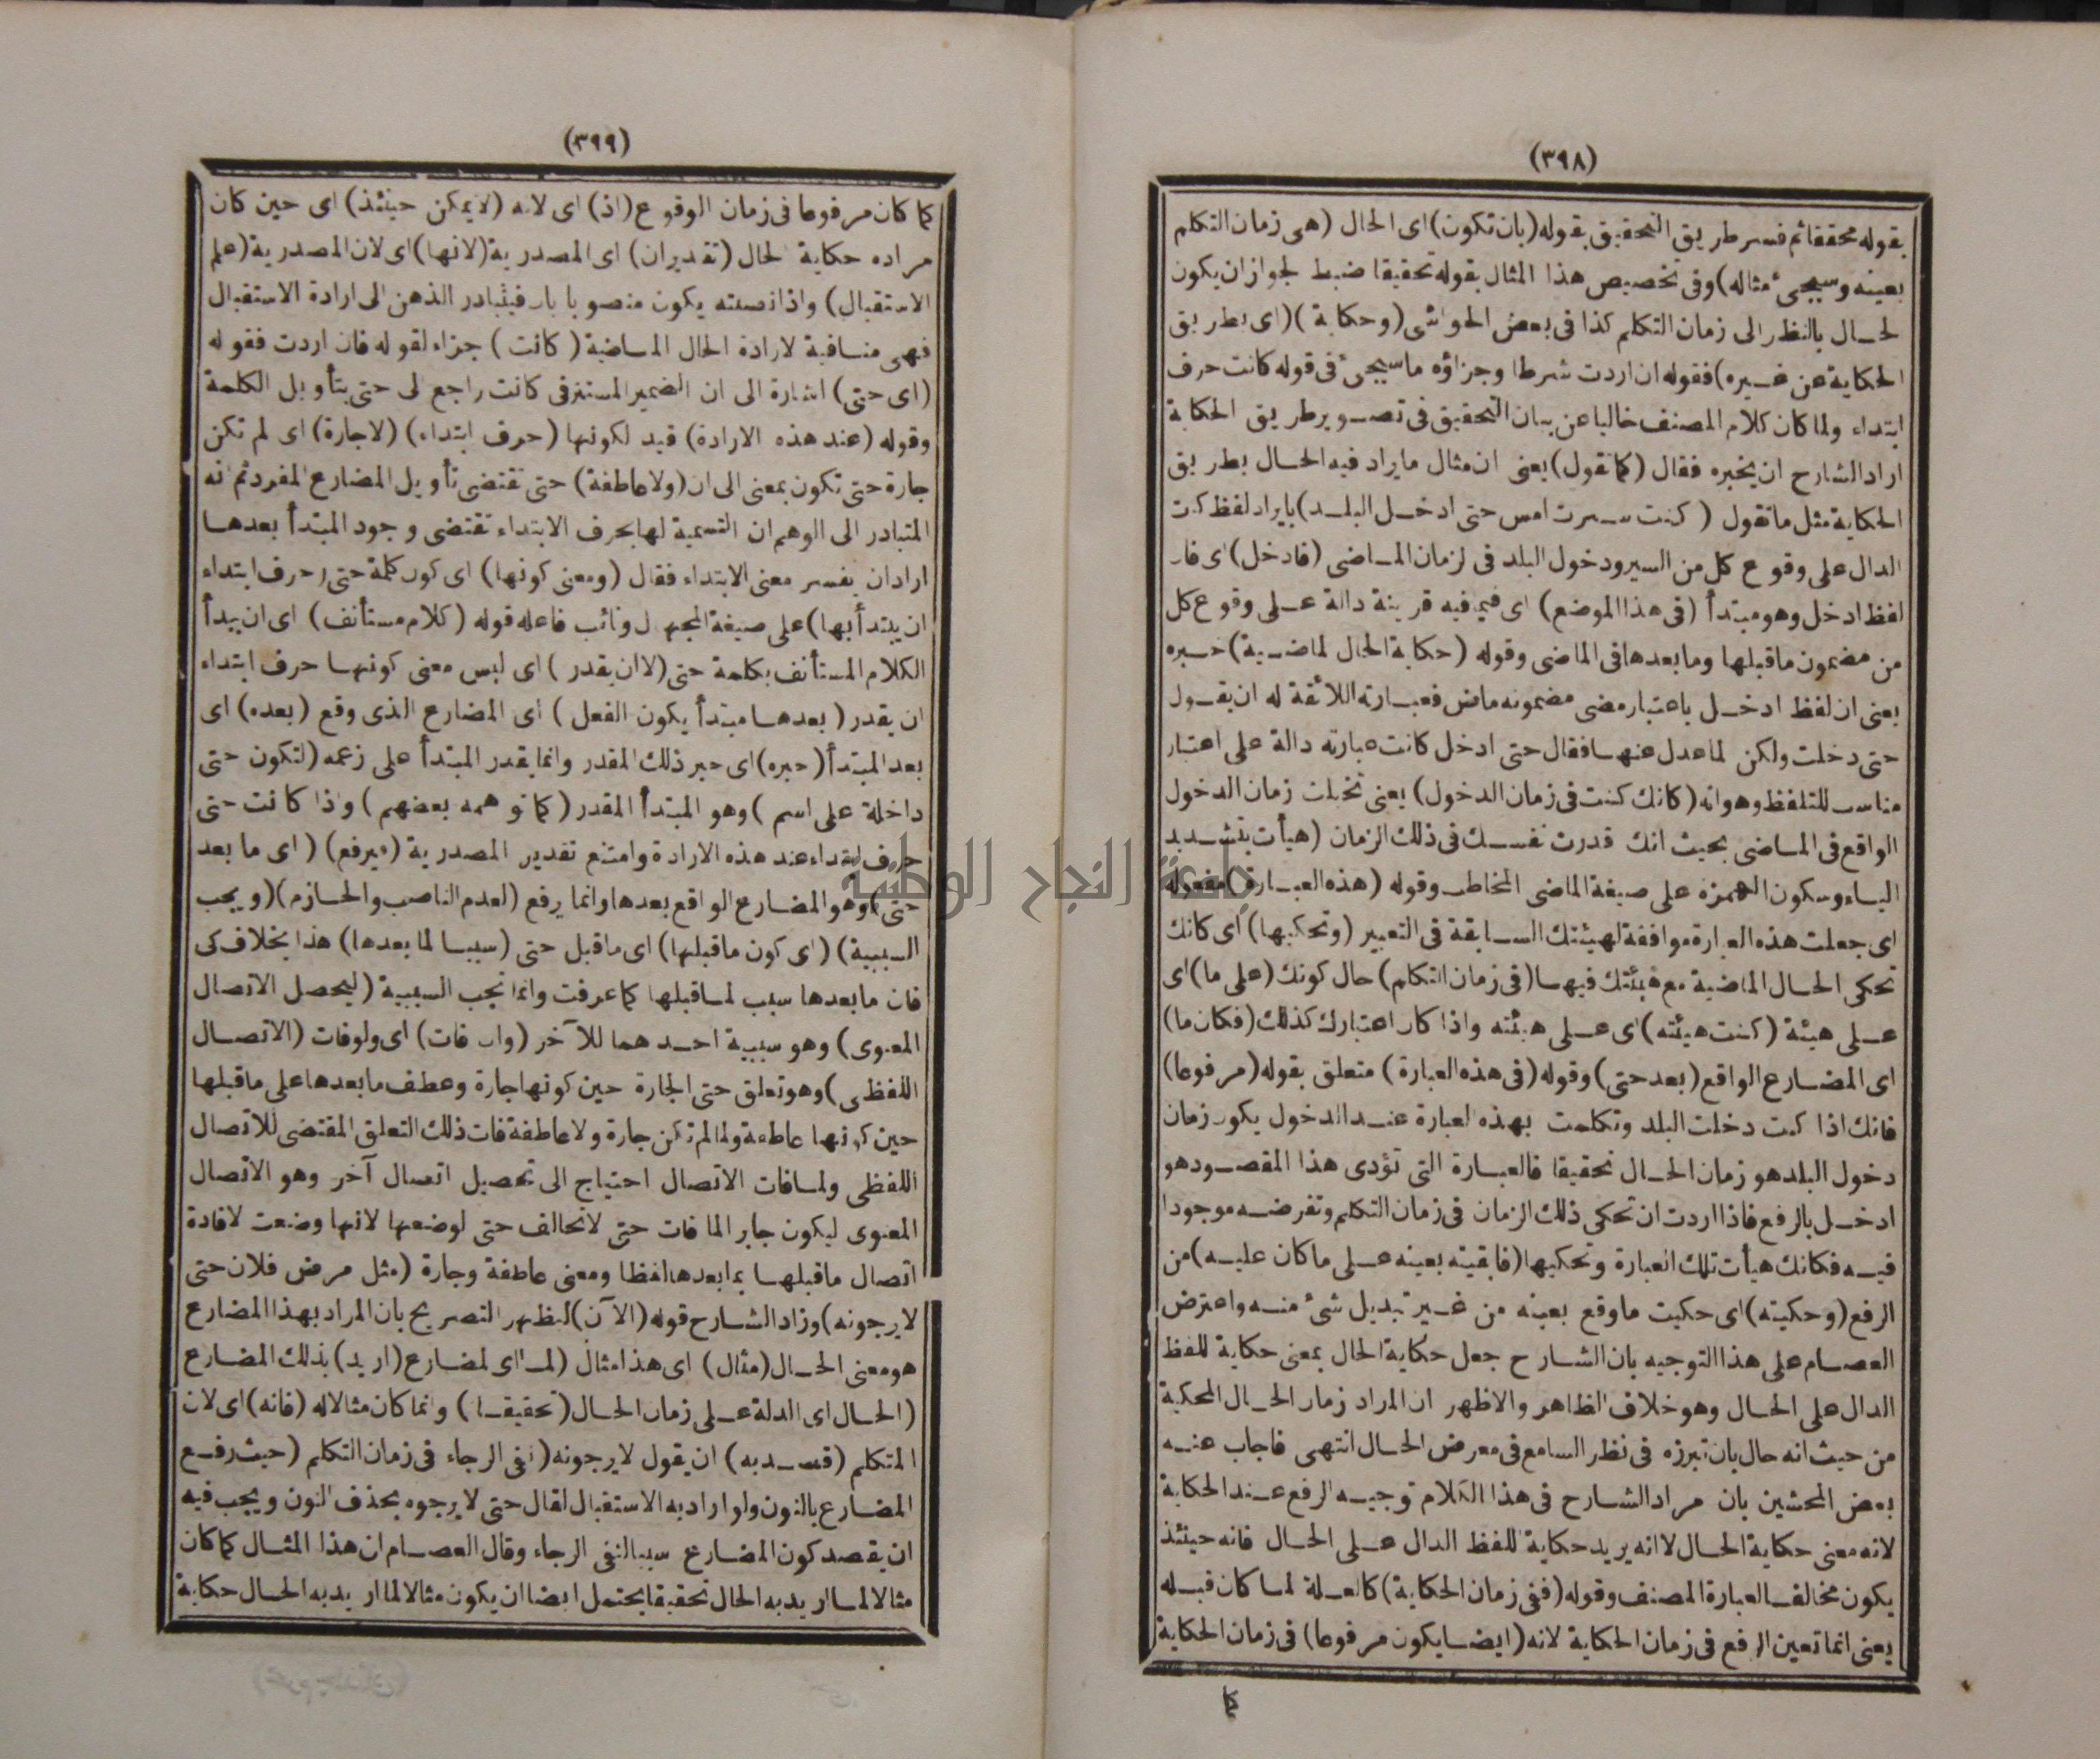 (٣٩٨)
بقوله محققا ثم فسر طريق التحقيق بقوله (بان تكون) اى الحال (هى زمان التكلم
بعينه وسيجىء مثاله) وفى تخصيص هذا المثال بقوله تحقيقا ضبط لجواز ان يكون
لحال بالنظر الى زمان التكلم كذا فى بعض الحواشى (وحكاية) (اى بطريق
الحكاية عن غيره) فقوله ان اردت شرط وجزاؤه ما سيجىء فى قوله كانت حرف
ابتداء ولما كان كلام المصنف خاليا عن بيان التحقيق فى تصوير طريق الحكاية
اراد الشارح ان يخبره فقال (كما تقول) يعنى ان مثال ما يراد فيه الحال بطريق
الحكاية مثل ما تقول (كنت سرت امس حتى ادخل البلد) بايراد لفظ كنت
الدال على وقوع كل من السير ودخول البلد فى لزمان الماضى (فادخل) اى فان
لفظ ادخل وهو مبتدأ (فى هذا الموضع) اى فيما فيه قرينة دالة على وقوع كل
من مضمون ما قبلها وما بعدها فى الماضى وقوله (حكاية الحال لماضية) خبره
يعنى ان لفظ ادخل باعتبار مضى مضمونه ماض فعبارته اللائقة له ان يقول
حتى دخلت ولكن لما عدل عنها فقال حتى ادخل كانت عبارته دالة على اعتبار
مناسب للتلفظ وهو انه (كانك كنت فى زمان الدخول) يعنى تخيلت زمان الدخول
الواقع فى الماضى بحيث انك قدرت نفسك فى ذلك الزمان (هيأت بتشديد
الياء وسكون الهمزة على صيغة الماضى المخاطب وقوله (هذه العبارة) مفعوله
اى جعلت هذه العبارة موافقة لهيئتك السابقة فى التعبير (وتحكيها) اى كانك
تحكى الحال الماضية مع هيئتك فيها (فى زمان التكلم) حال كونك (على ما) اى
على هيئة (كنت هيئته) اى على هيئته واذا كان اعتبارك كذلك (فكان ما)
اى المضارع الواقع (بعد حتى) وقوله (فى هذه العبارة) متعلق بقوله (مرفوعا)
فانك اذا كنت دخلت البلد وتكلمت بهذه لعبارة عند الدخول يكون زمان
دخول البلد هو زمان الحال تحقيقا فالعبارة التى تؤدى هذا المقصود هو
ادخل بالرفع فاذا اردت ان تحكى ذلك الزمان فى زمان التكلم وتفرضه موجودا
فيه فكانك هيأت تلك العبارة وتحكيها (فابقيته بعينه على ما كان عليه) من
الرفع (وحكيته) اى حكيت ما وقع بعينه من غير تبديل شىء منه واعترض
العصام على هذا التوجيه بان الشارح جعل حكاية الحال بمعنى حكاية للفظ
الدال على الحال وهو خلاف الظاهر والاظهر ان المراد زمان الحال المحكية
من حيث انه حال بان تبرزه فى نظر السامع فى معرض الحال انتهى فاجاب عنه
بعض المحشين بان مراد الشارح فى هذا الكلام توجيه الرفع عند الحكاية
لانه معنى حكاية الحال لا انه يريد حكاية للفظ الدال على الحال فانه حينئذ
يكون مخالفا لعبارة المصنف وقوله (ففى زمان الحكاية) كالعلة لما كان قبله
يعنى انما تعين الرفع فى زمان الحكاية لانه (ايضا يكون مرفوعا) فى زمان الحكاية
كما
(٣٩٩)
كما كان مرفوعا فى زمان الوقوع (اذ) اى لانه (لا يمكن حينئذ) اى حين كان
مراده حكاية لحال (تقدير ان) اى المصدرية (لانها) اى لان المصدرية (علم
الاستقبال) واذا نصبته يكون منصوبا بان فيتبادر الذهن الى ارادة الاستقبال
فهى منافية لارادة الحال الماضية (كانت) جزاء لقوله فان اردت فقوله
(اى حتى) اشارة الى ان الضمير المستتر فى كانت راجع الى حتى بتأويل الكلمة
وقوله (عند هذه الارادة) قيد لكونها (حرف ابتداء) (لا جارة) اى لم تكن
جارة حتى تكون بمعنى الى ان (ولا عاطفة) حتى تقتضى تأويل المضارع المفرد ثم انه
المتبادر الى الوهم ان التسمية لها بحرف الابتداء تقتضى وجود المبتدأ بعدها
اراد ان يفسر معنى الابتداء فقال (ومعنى كونها) اى كون كلمة حتى (حرف ابتداء
ان يبتدأ بها) على صيغة المجهول ونائب فاعله قوله (كلام مستأنف) اى ان يبدأ
الكلام المستأنف بكلمة حتى (لا ان يقدر) اى ليس معنى كونها حرف ابتداء
ان يقدر (بعدها مبتدأ يكون الفعل) اى المضارع الذى وقع (بعده) اى
بعد المبتدأ (خبره) اى خبر ذلك المقدر وانما يقدر المبتدأ على زعمه (لتكون حتى
داخلة على اسم) وهو المبتدأ المقدر (كما توهمه بعضهم) واذا كانت حتى
حرف ابتداء عند هذه الارادة وامتنع تقدير المصدرية (فيرفع) (اى ما بعد
حتى) وهو المضارع الواقع بعدها وانما يرفع (لعدم الناصب والجازم) (ويجب
السببية) (اى كون ما قبلها) اى ما قبل حتى (سببا لما بعدها) هذا بخلاف كى
فان ما بعدها سبب لما قبلها كما عرفت وانما تجب السببية (ليحصل الاتصال
المعنوى) وهو سببية احدهما للآخر (وان فات) اى ولو فات (الاتصال
اللفظى) وهو تعلق حتى الجارة حين كونها جارة وعطف ما بعدها على ما قبلها
حين كونها عاطفة ولما لم تكن جارة ولا عاطفة فات ذلك التعلق المقتضى للاتصال
اللفظى ولما فات الاتصال احتياج الى تحصيل اتصال آخر وهو الاتصال
المعنوى ليكون جابر الما فات حتى لا تخالف حتى لوضعها لانها وضعت لافادة
اتصال ما قبلها بما بعدها لفظا ومعنى عاطفة وجارة (مثل مرض فلان حتى
لا يرجونه) وزاد الشارح قوله (الآن) لظهر التصريح بان المراد بهذا المضارع
هو معنى الحال (مثال) اى هذا مثال (لما) اى لمضارع (اريد) بذلك المضارع
(الحال اى الدلة على زمان الحال (تحقيقا) وانما كان مثالا له (فانه) اى لان
المتكلم (قصد به) ان يقول لا يرجونه (نفى الرجاء فى زمان التكلم (حيث رفع
المضارع بالنون ولو اراد به الاستقبال لقال حتى لا يرجوه بحذف النون ويجب فيه
ان يقصد كون المضارع سببا لنفى الرجاء وقال العصام ان هذا المثال كما كان
مثالا لما اريد به الحال تحقيقا يحتمل ايضا ان يكون مثالا لما اريد به الحال حكاية
جامعة النجاح الوطنية